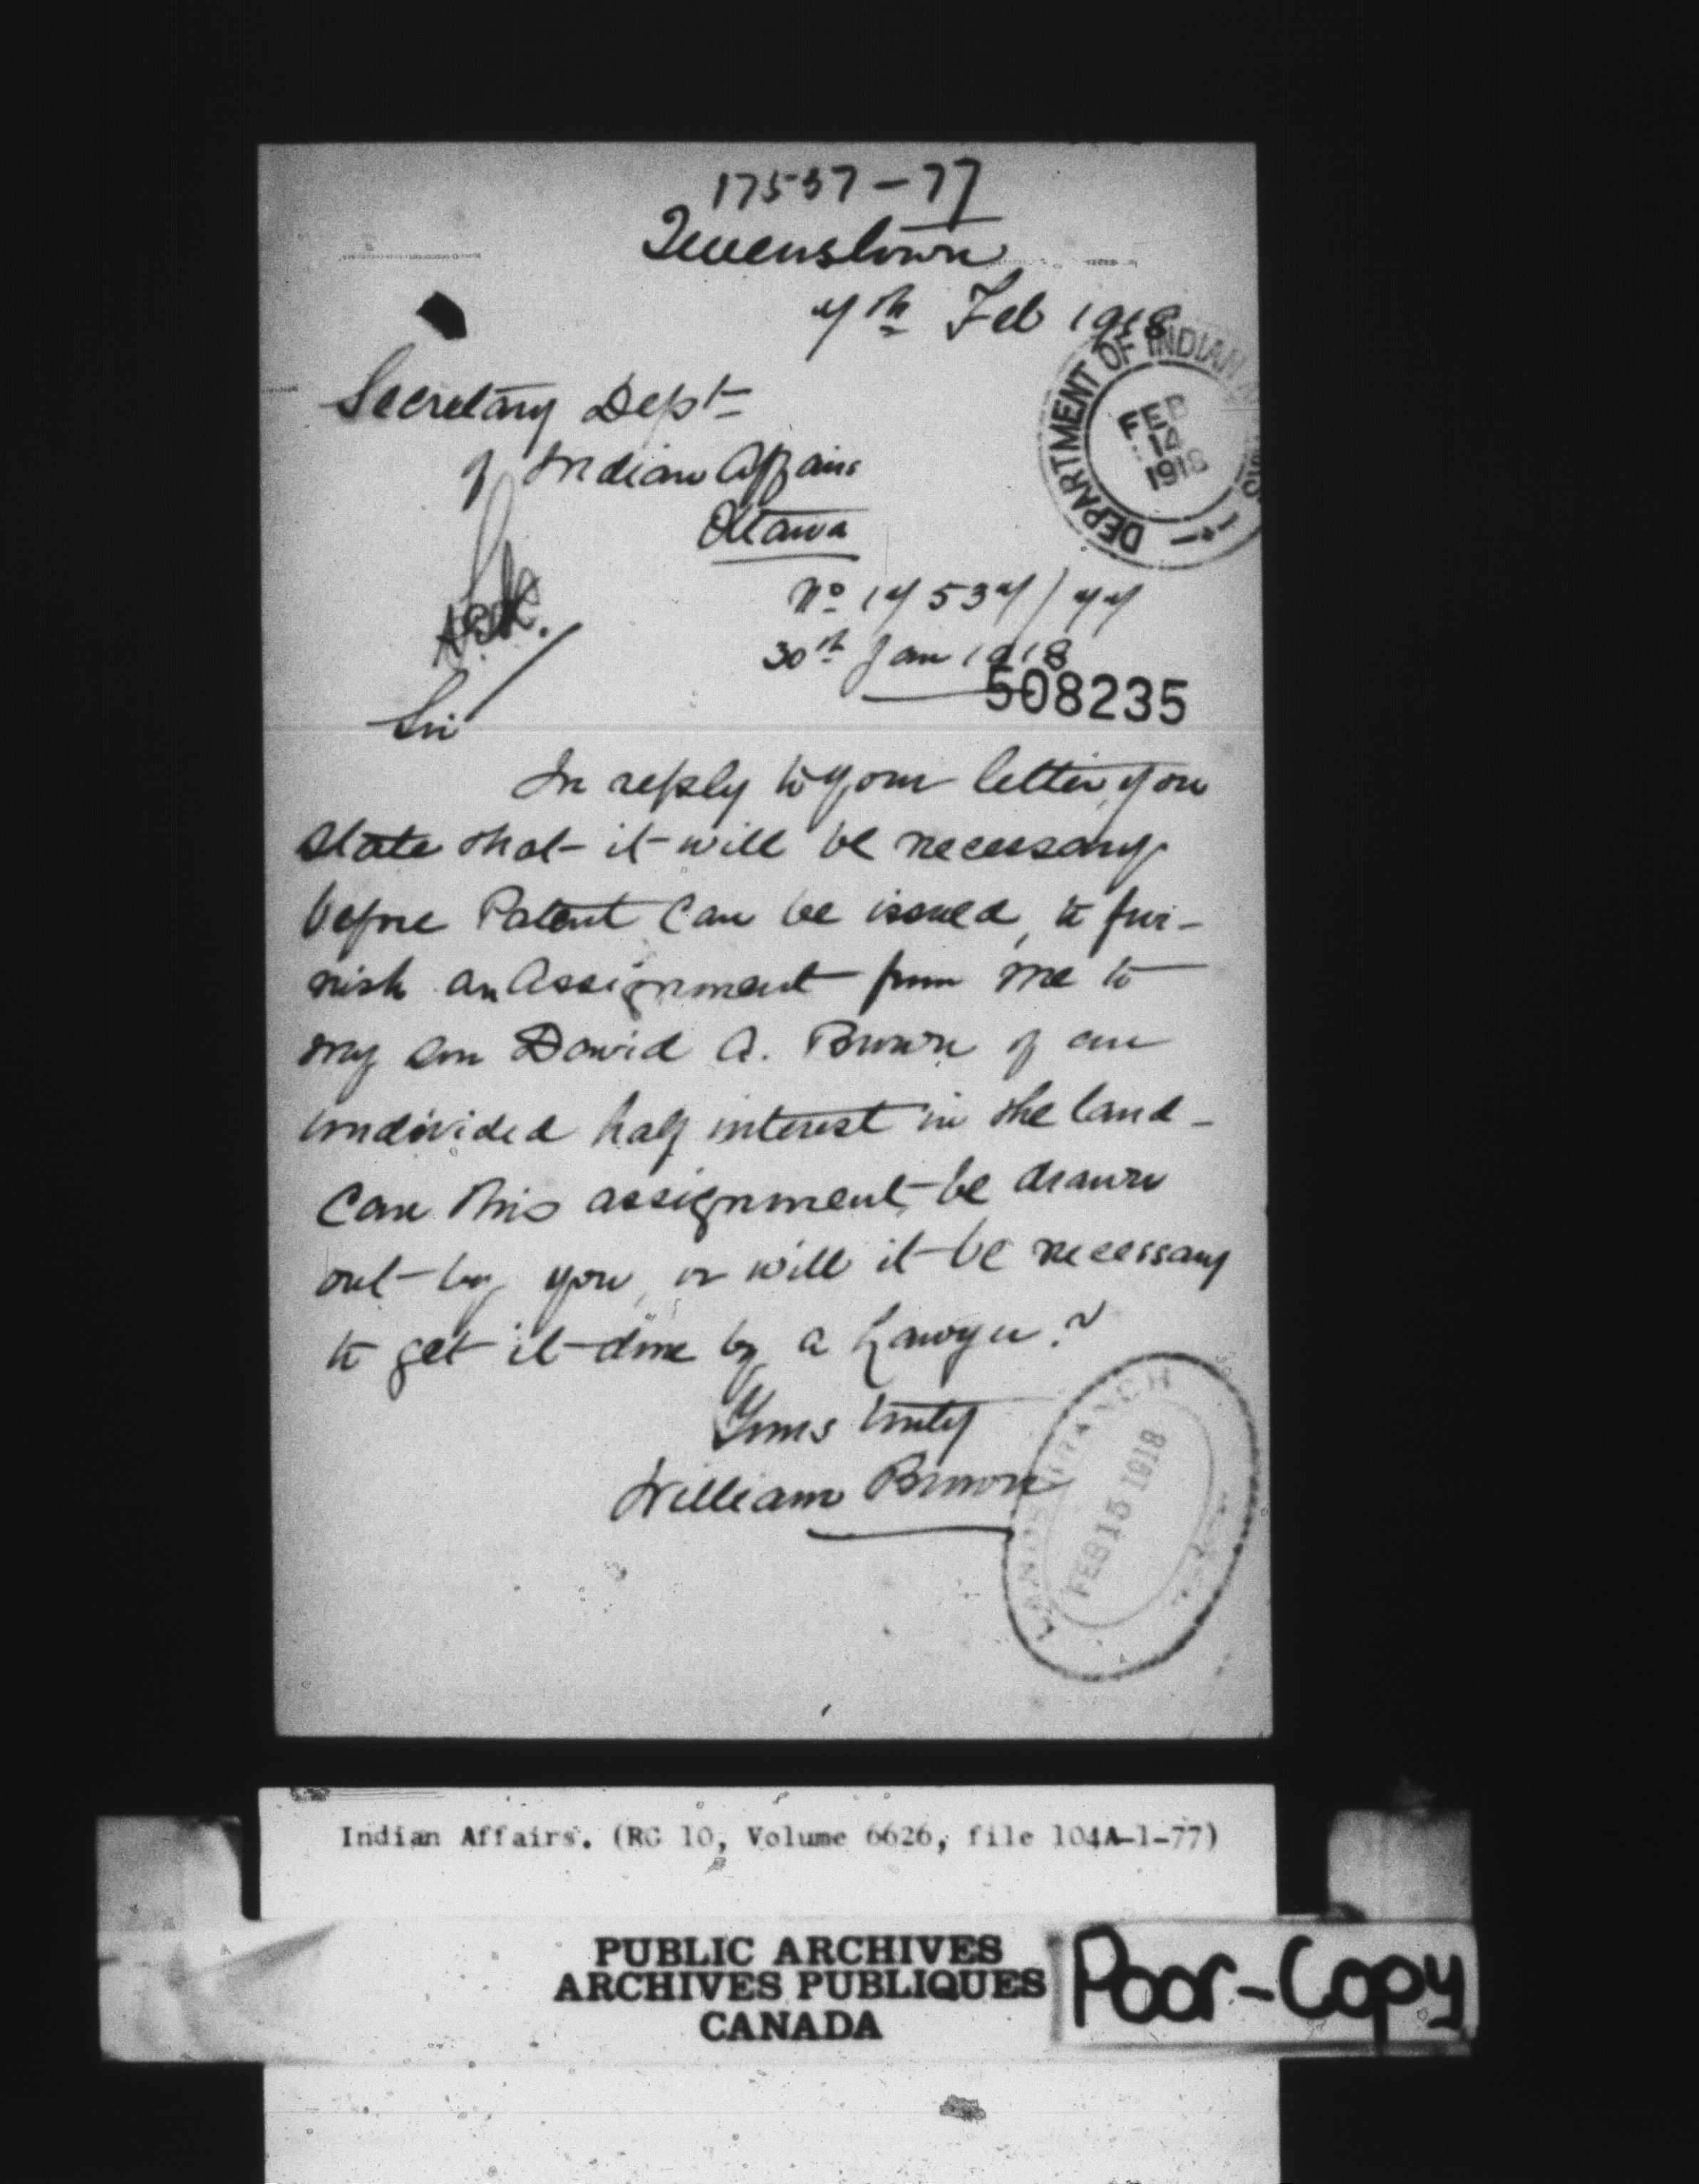 17537-77
Queenstown
7th Feb 1918
DEPARTMENT OF INDIAN
FEB
14
1918
Secretary Dept
of Indian Affairs
Ottawa
No 17537/77
30th Jan 1918
508235
Sir
In reply to your letter, you
state that it will be necessary
before Patent Can be issued, to fur-
nish an Assignment from me to
my son David A. Brown of an
undivided half interest in the land -
Can this assignment be drawn
out by you, or will it be necessary
to get it done by a Lawyer?
Yours truly
William Brown
LANDS BRANCH
FEB 15 1918
Indian Affairs. (RG 10, Volume 6626, file 104A-1-77)
PUBLIC ARCHIVES
ARCHIVES PUBLIQUES
CANADA
Poor-Copy